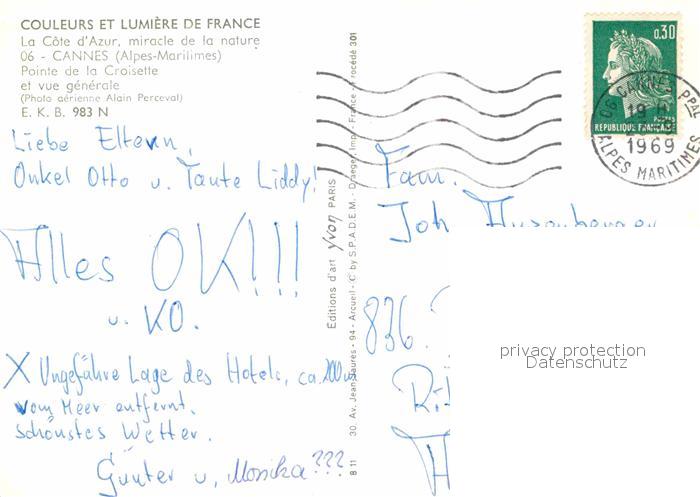 COULEURS ET LUMIÈRE DE FRANCE
La Côte d'Azur, miracle de la nature
06 - CANNES (Alpes-Maritimes)
Pointe de la Croisette
et vue générale
(Photo aérienne Alain Perceval)
E. K. B. 983 N
Liebe Eltern,
Onkel Otto u. Tante Liddy!
Alles OK!!!
u. KO.
X Ungefähre Lage des Hotels, ca. 200 m
vom Meer entfernt.
schönstes Wetter.
Günter u. Monika???
Editions d'art yvon PARIS
B 11 30, Av. Jean-Jaurès - 94 - Arcueil - © by S.P.A.D.E.M. - Draeger, Imp. - France - Procédé 301
0,30
POSTES
REPUBLIQUE FRANÇAISE
06 CANNES Pal
19 H
1969
ALPES MARITIMES
Fam.
Joh
836
privacy protection
Datenschutz